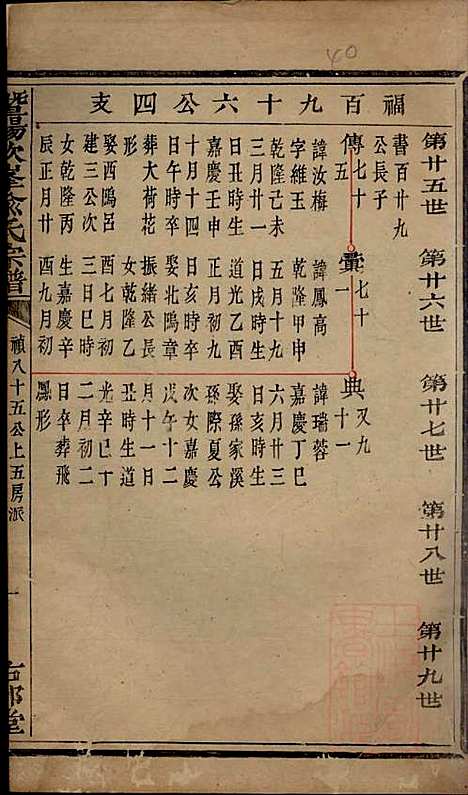 福百九十六公四支
第廿五世
第廿六世
第廿七世
第廿八世
第廿九世
書百廿九
公長子
傳七十五
諱汝梅
字維玉
乾隆壬申
三月廿一
日丑時生
嘉慶壬申
十月十四
日午時卒
葬大荷花
形
娶西鴎呂
建三公次
女乾隆丙
辰正月廿
彙七十一
諱鳳高
乾隆甲申
五月十九
日戌時生
道光乙酉
正月初九
日亥時卒
娶北鴎章
振緒公長
女乾隆乙
酉七月初
三日巳時
生嘉慶辛
酉九月初
典又九十一
諱瑞蓉
嘉慶丁巳
六月廿三
日亥時生
娶孫家溪
孫際夏公
次女嘉慶
戊午十二
月十一日
丑時生道
光辛巳十
二月初二
日卒葬飛
鳳形
暨陽次峯俞氏宗譜
禎八十五公上五房派
一
40